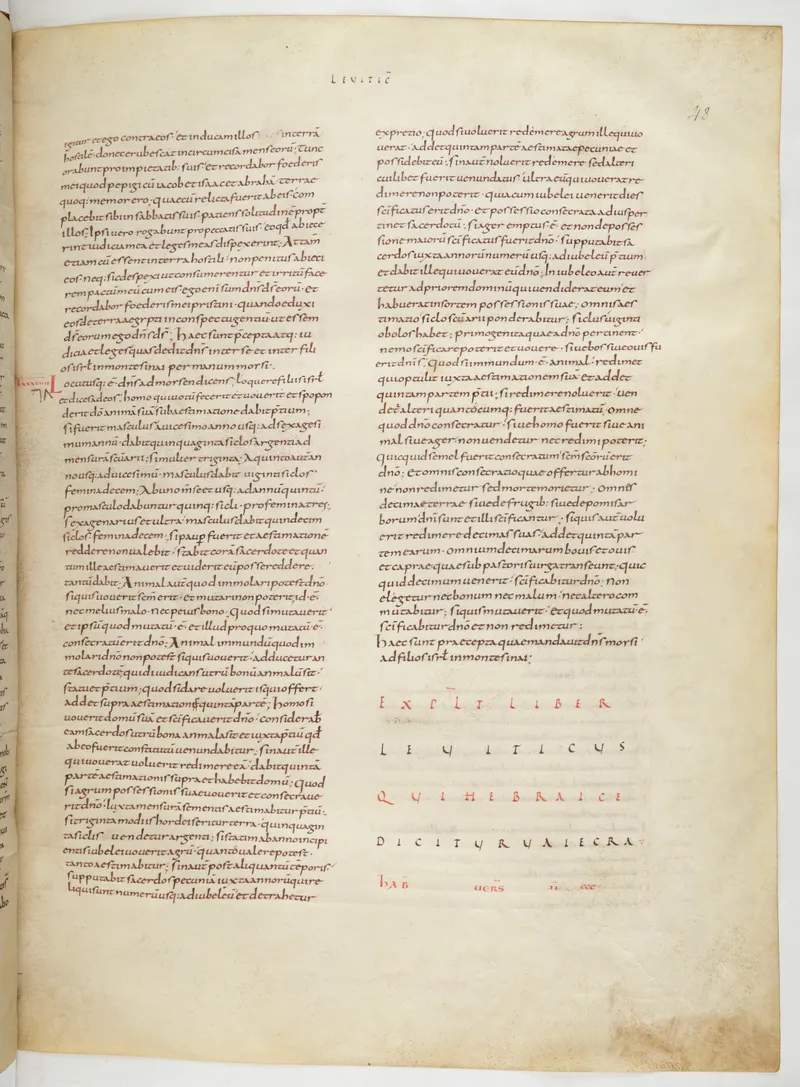 LEVITIC̄
48
igitur et ego contra eos et inducam illos in terrā
hostilē donec erubescat incircumcisa mens eorū; Tunc
orabunt pro impietatib: suis et recordabor foederis
mei quod pepigi cū iacob et isaac et abrahā terrae
quoq: memor ero; quae cū relicta fuerit ab eis com
placebit sibi in sabbatis suis patiens solitudinē propt
illos; Ipsi uero rogabunt pro peccatis suis eo qđ abiece
rint iudicia mea et leges meas dispexerint; Attam
etiam cū essent in terra hostili non penitus abieci
eos neq: sic despexi ut consumerentur et irritū face
rem pactū meū cum eis; ego enī sum dn̄s d̄s eorū et
recordabor foederis mei pristini quando eduxi
eos de terra aegypti in conspectu gentiū ut essem
d̄s eorum ego dn̄s d̄s; Haec sunt p̄cepta atq: iu
dicia et leges quas dedit dn̄s inter se et inter fili
os isrl̄ in monte sinai per manum morsi;
Locutusq: ē dn̄s ad morsen dicens; loquere filiis isrl̄
et dices ad eos; homo qui uotū fecerit et uouerit et spopon
derit dō animā suā sub aestimatione dabit p̄tium;
si fuerit masculus a uicesimo anno usq: ad sexagesi
mum annū dabit quinquaginta siclos argenti ad
mensurā sc̄uarii; si mulier triginta; A quinto autē an
no usq: ad uicesimū masculus dabit uiginti siclos
femina decem; Ab uno m̄se et usq: ad annū quintū
pro masculo dabuntur quinq: sicli pro femina tres;
Sexagenarius et ultra masculus dabit quindecim
siclos femina decem; si paup̄ fuerit et aestimationē
reddere non ualebit stabit corā sacerdote et quan
tum ille aestimauerit et uiderit eū posse reddere
tantū dabit; Animal autē quod immolari potest dn̄o
si quis uouerit sc̄m erit et mutari non poterit id ē
nec melius malo nec peius bono; Quod si mutauerit
et ipsū quod mutatū ē et illud pro quo mutatū ē
consecratū erit dn̄o; Animal inmundū quod im
molari dn̄o non potest si quis uouerit adducetur an
te sacerdotē qui diiudicans utrū bonū an malū sit
statuet p̄tium; quod si dare uoluerit is qui offert
addet supra aestimationē quintā partē; homo si
uouerit domū suā et sc̄ificauerit dn̄o considerab
eam sacerdos utrū bona an mala sit et iuxta p̄tiū qđ
ab eo fuerit constitutū uenundabitur; sin autē ille
qui uouerat uoluerit redimere eā dabit quintā
partē aestimationis supra et habebit domū; Quod
si agrum possessionis suae uouerit et consecraue
rit dn̄o iuxta mensurā sementis aestimabitur p̄tiū;
si triginta modiis hordei seritur terra quinquagin
ta siclis uendetur argenti; si statim ab anno incipi
entis iubelei uouerit agrū quanto ualere potest
tanto aestimabitur; sin autē post aliquantū tēporis
supputabit sacerdos pecuniā iuxta annorū qui re
liqui sunt numerū usq: ad iubeleū et detrahetur
ex pretio; Quod si uoluerit redimere agrum ille qui uo
uerat addet quintam partē aestimatae pecuniae et
possidebit eū; sin autē noluerit redimere sed alteri
cuilibet fuerit uenundatus ultra eū qui uouerat re
dimere non poterit quia cum iubelei uenerit dies
sc̄ificatus erit dn̄o et possessio consecrata ad ius per
tinet sacerdotū; si ager emptus ē et non de posses
sione maiorū sc̄ificatus fuerit dn̄o supputabit sa
cerdos iuxta annorū numerū usq: ad iubeleū p̄tium
et dabit ille qui uouerat eū dn̄o; In iubeleo autē reuer
tetur ad priorem dominū qui uendiderat eum et
habuerat in sortem possessionis suae; omnis aes
timatio siclo sc̄uarii ponderabitur; siclus uiginti
obolos habet; primogenita quae ad dn̄o pertinent
nemo sc̄ificare poterit et uouere siue bos siue ouis fu
erit dn̄i s̄; Quod si immundum ē animal redimet
qui optulit iuxta aestimationem suā et addet
quintam partem p̄tii; si redimere noluerit uen
detur alteri quantocumq: fuerit aestimatū; omne
quod dn̄o consecratur siue homo fuerit siue ani
mal siue ager non uendetur nec redimi poterit;
quicquid semel fuerit consecratum sc̄m sc̄orū erit
dn̄o; et omnis consecratio quae offertur ab homi
ne non redimetur sed morte morietur; omnes
decimae terrae siue de frugib: siue de pomis ar
borum dn̄i sunt et illi sc̄ificantur; si quis autē uolu
erit redimere decimas suas addet quintā par
tem earum omnium decimarum bouis et ouis
et caprae quae sub pastoris uirga transeunt; quic
quid decimum uenerit sc̄ificabitur dn̄o; non
elegetur nec bonum nec malum nec altero com
mutabitur; si quis mutauerit et quod mutatū ē
sc̄ificabitur dn̄o et non redimetur;
Haec sunt praecepta quae mandauit dn̄s morsi
ad filios isrl̄ in monte sinai;
EXPLT LIBER
LEVITICVS
QVI HEBRAICE
DICITVR VAIECRA
HAB UERS